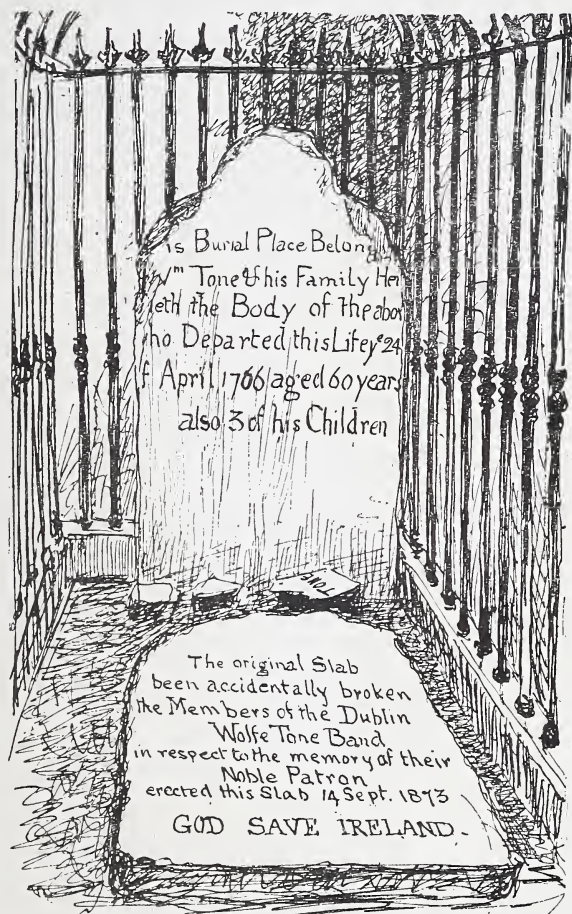 is Burial Place Belon
Wm Tone & his Family He
eth the Body of the abo
ho Departed this Life ye 24
f April 1766 aged 60 years
also 3 of his Children
TONE
The original Slab
been accidentally broken
the Members of the Dublin
Wolfe Tone Band
in respect to the memory of their
Noble Patron
erected this Slab 14 Sept. 1873
GOD SAVE IRELAND.